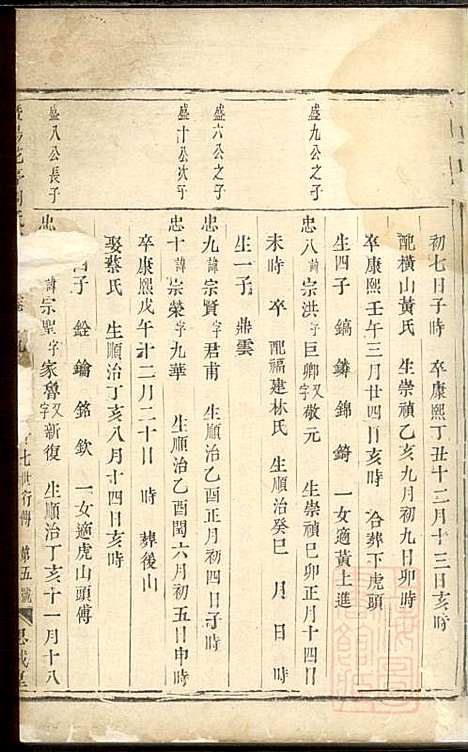 初七日子時 卒康熙丁丑十二月十三日亥時
配橫山黃氏 生崇禎乙亥九月初九日卯時
卒康熙壬午三月廿四日亥時 合葬下虎頭
生四子 鎬 鏻 錦 錡 一女適黃上進
盛九公之子
忠八 諱宗洪 字巨卿 又字敬元 生崇禎己卯正月十四日
未時 卒 配福建林氏 生順治癸巳 月 日 時
生一子 鼎雲
盛六公之子
忠九 諱宗賢 字君甫 生順治乙酉正月初四日子時
盛十公次子
忠十 諱宗榮 字九華 生順治乙酉閏六月初五日申時
卒康熙戊午十二月二十日 時 葬後山
娶蔡氏 生順治丁亥八月十四日亥時
子 銓 鑰 銘 欽 一女適虎山頭傅
盛八公長子
忠 諱宗聖 字家魯 又字新復 生順治丁亥十一月十八
十七世行傳 第五號 思成堂